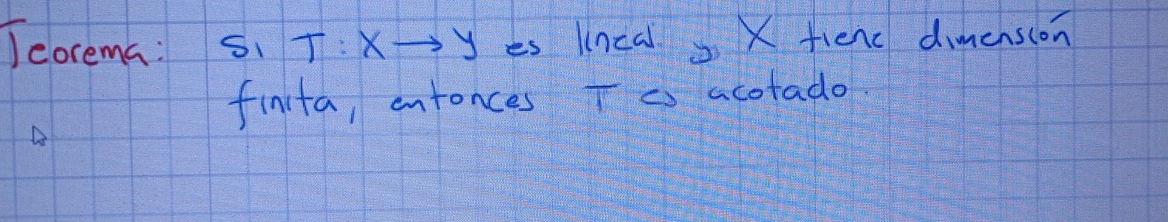 Teorema: Si T: X → Y es lineal y X tiene dimensión
finita, entonces T es acotado.